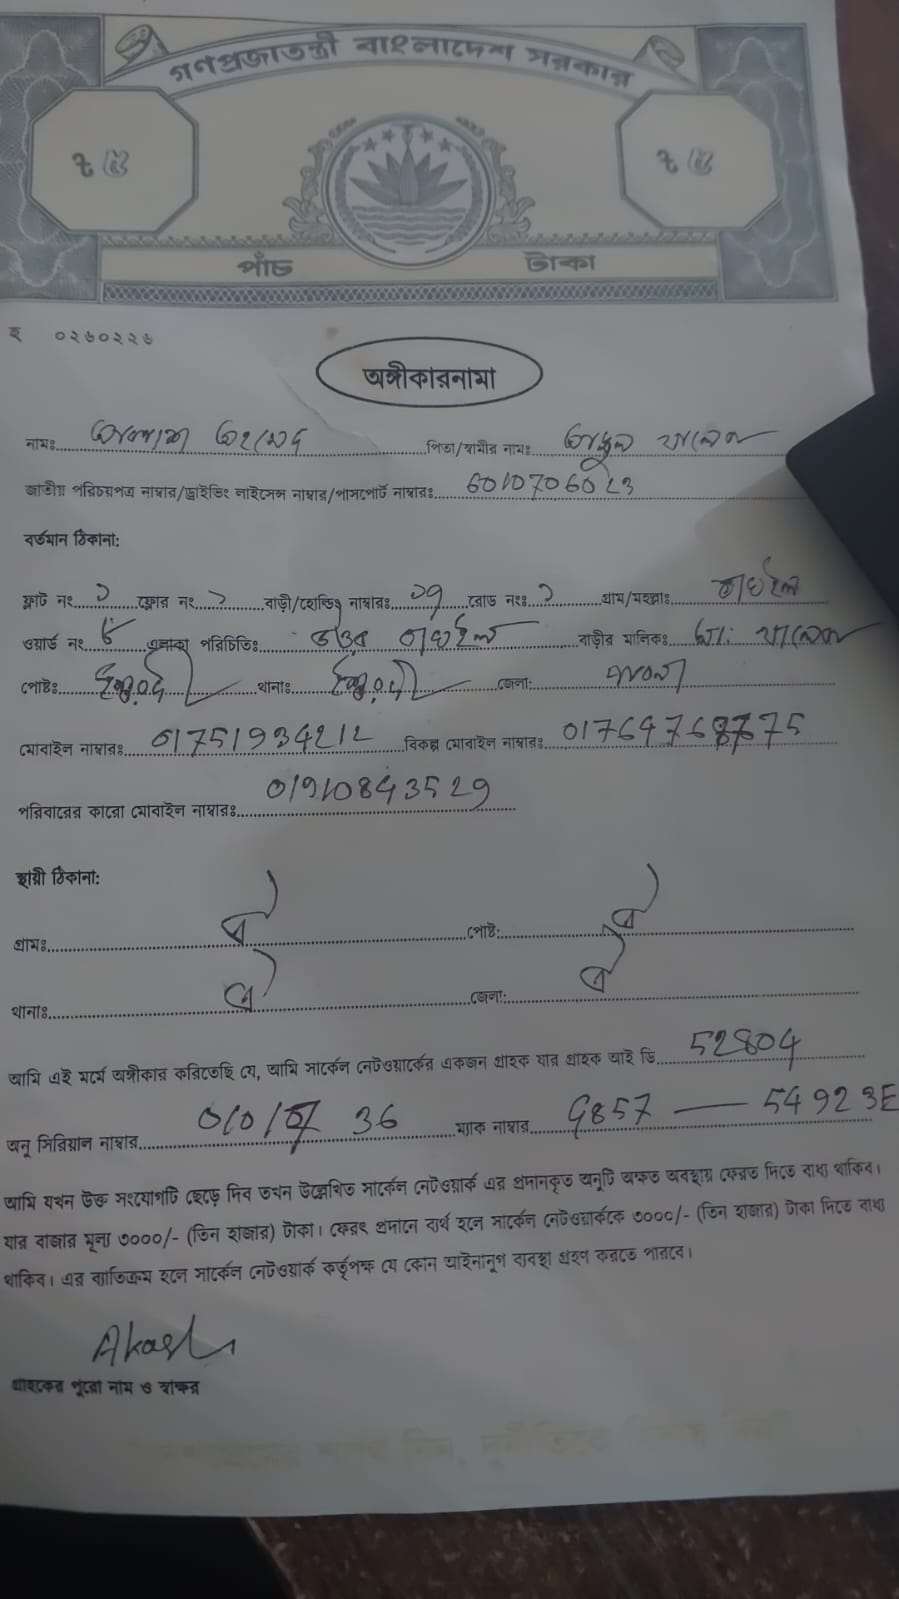 গণপ্রজাতন্ত্রী বাংলাদেশ সরকার
৳ ৫ ৳ ৫
পাঁচ টাকা
হ ০২৬০২২৬
অঙ্গীকারনামা
নামঃ আকাশ আহমেদ পিতা/স্বামীর নামঃ আব্দুল খালেক
জাতীয় পরিচয়পত্র নাম্বার/ড্রাইভিং লাইসেন্স নাম্বার/পাসপোর্ট নাম্বারঃ 6010706023
বর্তমান ঠিকানা:
ফ্লাট নং ১ ফ্লোর নং ১ বাড়ী/হোল্ডিং নাম্বারঃ রোড নংঃ গ্রাম/মহল্লাঃ
ওয়ার্ড নং ৮ এলাকা পরিচিতিঃ বাড়ীর মালিকঃ মোঃ খালেক
পোষ্টঃ ঈশ্বরদী থানাঃ ঈশ্বরদী জেলা: পাবনা
মোবাইল নাম্বারঃ 01751934212 বিকল্প মোবাইল নাম্বারঃ
পরিবারের কারো মোবাইল নাম্বারঃ 01910843529
স্থায়ী ঠিকানা:
গ্রামঃ ঐ পোষ্ট: ঐ
থানাঃ ঐ জেলা: ঐ
আমি এই মর্মে অঙ্গীকার করিতেছি যে, আমি সার্কেল নেটওয়ার্কের একজন গ্রাহক যার গ্রাহক আই ডি 52804
অনু সিরিয়াল নাম্বার 36 ম্যাক নাম্বার 9857 — 54923E
আমি যখন উক্ত সংযোগটি ছেড়ে দিব তখন উল্লেখিত সার্কেল নেটওয়ার্ক এর প্রদানকৃত অনুটি অক্ষত অবস্থায় ফেরত দিতে বাধ্য থাকিব।
যার বাজার মূল্য ৩০০০/- (তিন হাজার) টাকা। ফেরৎ প্রদানে ব্যর্থ হলে সার্কেল নেটওয়ার্ককে ৩০০০/- (তিন হাজার) টাকা দিতে বাধ্য
থাকিব। এর ব্যতিক্রম হলে সার্কেল নেটওয়ার্ক কর্তৃপক্ষ যে কোন আইনানুগ ব্যবস্থা গ্রহণ করতে পারবে।
Akash
গ্রাহকের পুরো নাম ও স্বাক্ষর